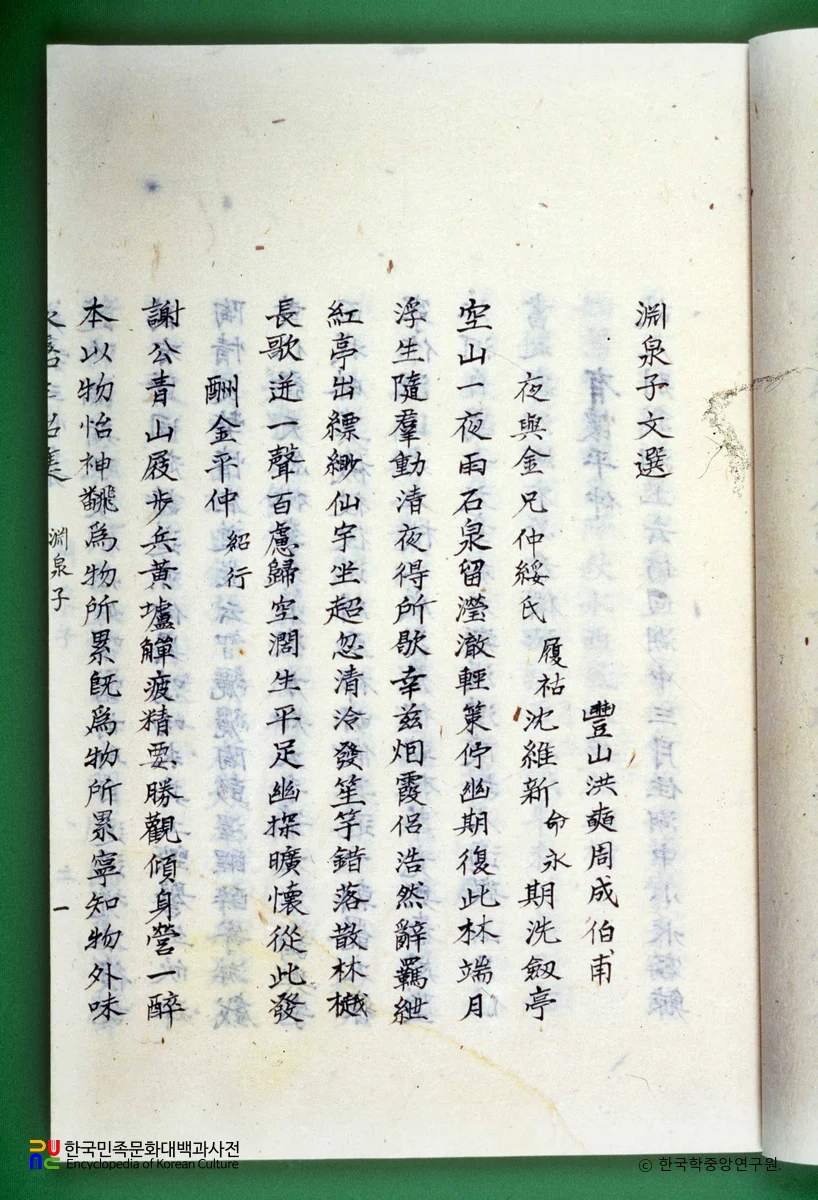 淵泉子文選
豐山洪奭周成伯甫
夜與金兄仲綏氏履祜沈維新命永期洗劔亭
空山一夜雨石泉留瀅澈輕策佇幽期復此林端月
浮生隨羣動清夜得所歇幸兹烟霞侶浩然辭羈紲
紅亭出縹緲仙宇坐超忽清泠發笙竽錯落散林樾
長歌迸一聲百慮歸空濶生平足幽探曠懷從此發
酬金平仲紹行
謝公青山屐步兵黃壚觶疲精要勝觀傾身營一醉
本以物怡神翻爲物所累旣爲物所累寧知物外味
淵泉子
一
한국민족문화대백과사전
Encyclopedia of Korean Culture
ⓒ 한국학중앙연구원